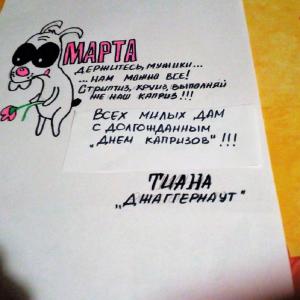 МАРТА
ДЕРЖИТЕСЬ, МУЖИКИ...
...НАМ МОЖНО ВСЕ!
СТРИПТИЗ, КРУИЗ, ВЫПОЛНЯЙ
ЖЕ НАШ КАПРИЗ!!!
ВСЕХ МИЛЫХ ДАМ
С ДОЛГОЖДАННЫМ
„ДНЕМ КАПРИЗОВ"!!!
ТИАНА
„ДЖАГГЕРНАУТ"